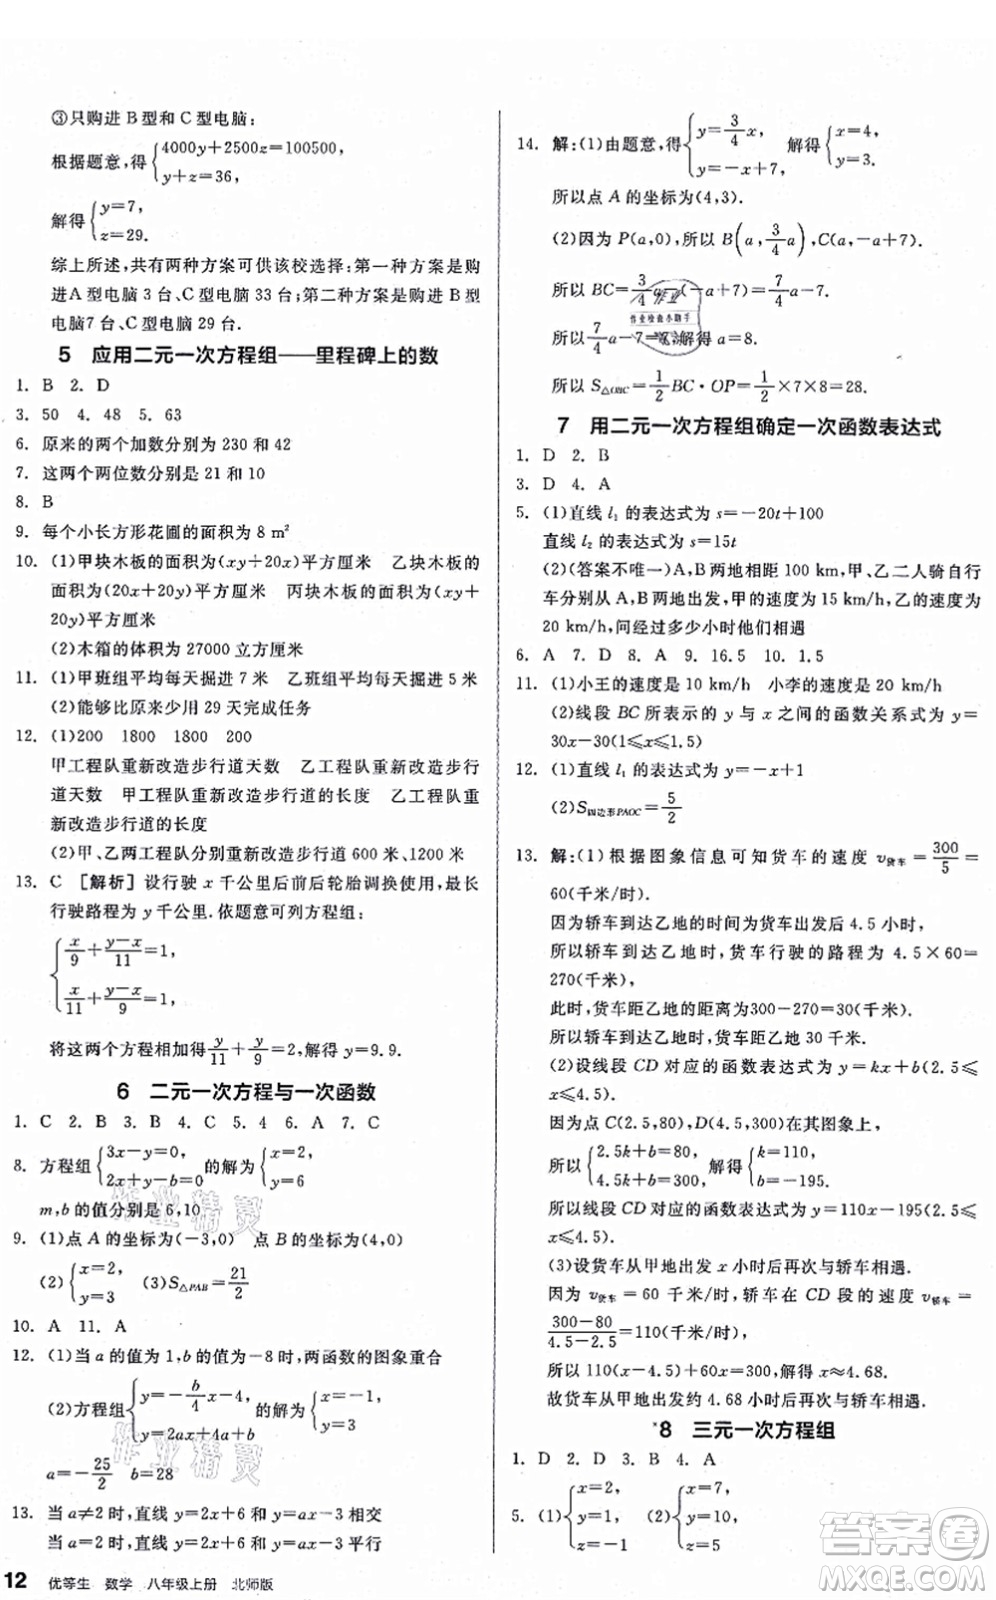 ③只购进 B 型和 C 型电脑:
根据题意,得{4000y+2500z=100500,
y+z=36,
解得{y=7,
z=29.
综上所述,共有两种方案可供该校选择:第一种方案是购
进A型电脑 3 台、C型电脑 33 台;第二种方案是购进 B 型
电脑7 台、C型电脑 29 台.
5 应用二元一次方程组——里程碑上的数
1. B 2. D
3. 50 4. 48 5. 63
6. 原来的两个加数分别为 230 和 42
7. 这两个两位数分别是 21 和 10
8. B
9. 每个小长方形花圃的面积为 8 m²
10. (1)甲块木板的面积为(xy+20x)平方厘米 乙块木板的
面积为(20x+20y)平方厘米 丙块木板的面积为(xy+
20y)平方厘米
(2)木箱的体积为 27000 立方厘米
11. (1)甲班组平均每天掘进 7 米 乙班组平均每天掘进 5 米
(2)能够比原来少用 29 天完成任务
12. (1)200 1800 1800 200
甲工程队重新改造步行道天数 乙工程队重新改造步行
道天数 甲工程队重新改造步行道的长度 乙工程队重
新改造步行道的长度
(2)甲、乙两工程队分别重新改造步行道 600 米、1200 米
13. C [解析] 设行驶 x 千公里后前后轮胎调换使用,最长
行驶路程为 y 千公里.依题意可列方程组:
{x/9+(y-x)/11=1,
x/11+(y-x)/9=1,
将这两个方程相加得y/11+y/9=2,解得 y=9.9.
6 二元一次方程与一次函数
1. C 2. B 3. B 4. C 5. 4 6. A 7. C
8. 方程组{3x-y=0,
2x+y-b=0的解为{x=2,
y=6
m,b 的值分别是 6,10
9. (1)点 A 的坐标为(-3,0) 点 B 的坐标为(4,0)
(2){x=2,
y=3 (3)S△PAB=21/2
10. A 11. A
12. (1)当 a 的值为 1,b 的值为-8 时,两函数的图象重合
(2)方程组{y=b/4x-4,
y=2ax+a+b的解为{x=-1,
y=3
a=-25/2 b=28
13. 当 a≠2 时,直线 y=2x+6 和直线 y=ax-3 相交
当 a=2 时,直线 y=2x+6 和直线 y=ax-3 平行
12 优等生 数学 八年级上册 北师版
14. 解:(1)由题意,得{y=3/4x,
y=-x+7, 解得{x=4,
y=3.
所以点 A 的坐标为(4,3).
(2)因为 P(a,0),所以 B(a,3/4a),C(a,-a+7).
所以 BC=3/4a-(-a+7)=7/4a-7.
所以7/4a-7=7,解得 a=8.
所以 S△OBC=1/2BC·OP=1/2×7×8=28.
7 用二元一次方程组确定一次函数表达式
1. D 2. B
3. D 4. A
5. (1)直线 l₁ 的表达式为 s=-20t+100
直线 l₂ 的表达式为 s=15t
(2)(答案不唯一)A,B 两地相距 100 km,甲、乙二人骑自行
车分别从 A,B 两地出发,甲的速度为 15 km/h,乙的速度为
20 km/h,问经过多少小时他们相遇
6. A 7. D 8. A 9. 16.5 10. 1.5
11. (1)小王的速度是 10 km/h 小李的速度是 20 km/h
(2)线段 BC 所表示的 y 与 x 之间的函数关系式为 y=
30x-30(1⩽x⩽1.5)
12. (1)直线 l₁ 的表达式为 y=-x+1
(2)S四边形PAOC=5/2
13. 解:(1)根据图象信息可知货车的速度 v货车=300/5=
60(千米/时).
因为轿车到达乙地的时间为货车出发后 4.5 小时,
所以轿车到达乙地时,货车行驶的路程为 4.5×60=
270(千米).
此时,货车距乙地的距离为300-270=30(千米).
所以轿车到达乙地时,货车距乙地 30 千米.
(2)设线段 CD 对应的函数表达式为 y=kx+b(2.5⩽
x⩽4.5).
因为点 C(2.5,80),D(4.5,300)在其图象上,
所以{2.5k+b=80,
4.5k+b=300, 解得{k=110,
b=-195.
所以线段 CD 对应的函数表达式为 y=110x-195(2.5⩽
x⩽4.5).
(3)设货车从甲地出发 x 小时后再次与轿车相遇.
因为 v货车=60 千米/时,轿车在 CD 段的速度 v轿车=
(300-80)/(4.5-2.5)=110(千米/时),
所以 110(x-4.5)+60x=300,解得 x≈4.68.
故货车从甲地出发约 4.68 小时后再次与轿车相遇.
*8 三元一次方程组
1. D 2. D 3. B 4. A
5. (1){x=2,
y=1,
z=-1 (2){x=7,
y=10,
z=5
作业检查小助手
作业精灵
作业精灵
答案圈
MXQE.COM